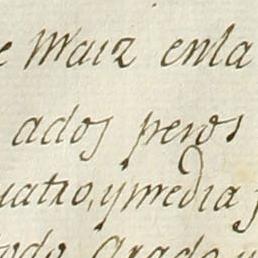 e Maiz enla
ados pesos
uatro, y media
todo Grado y